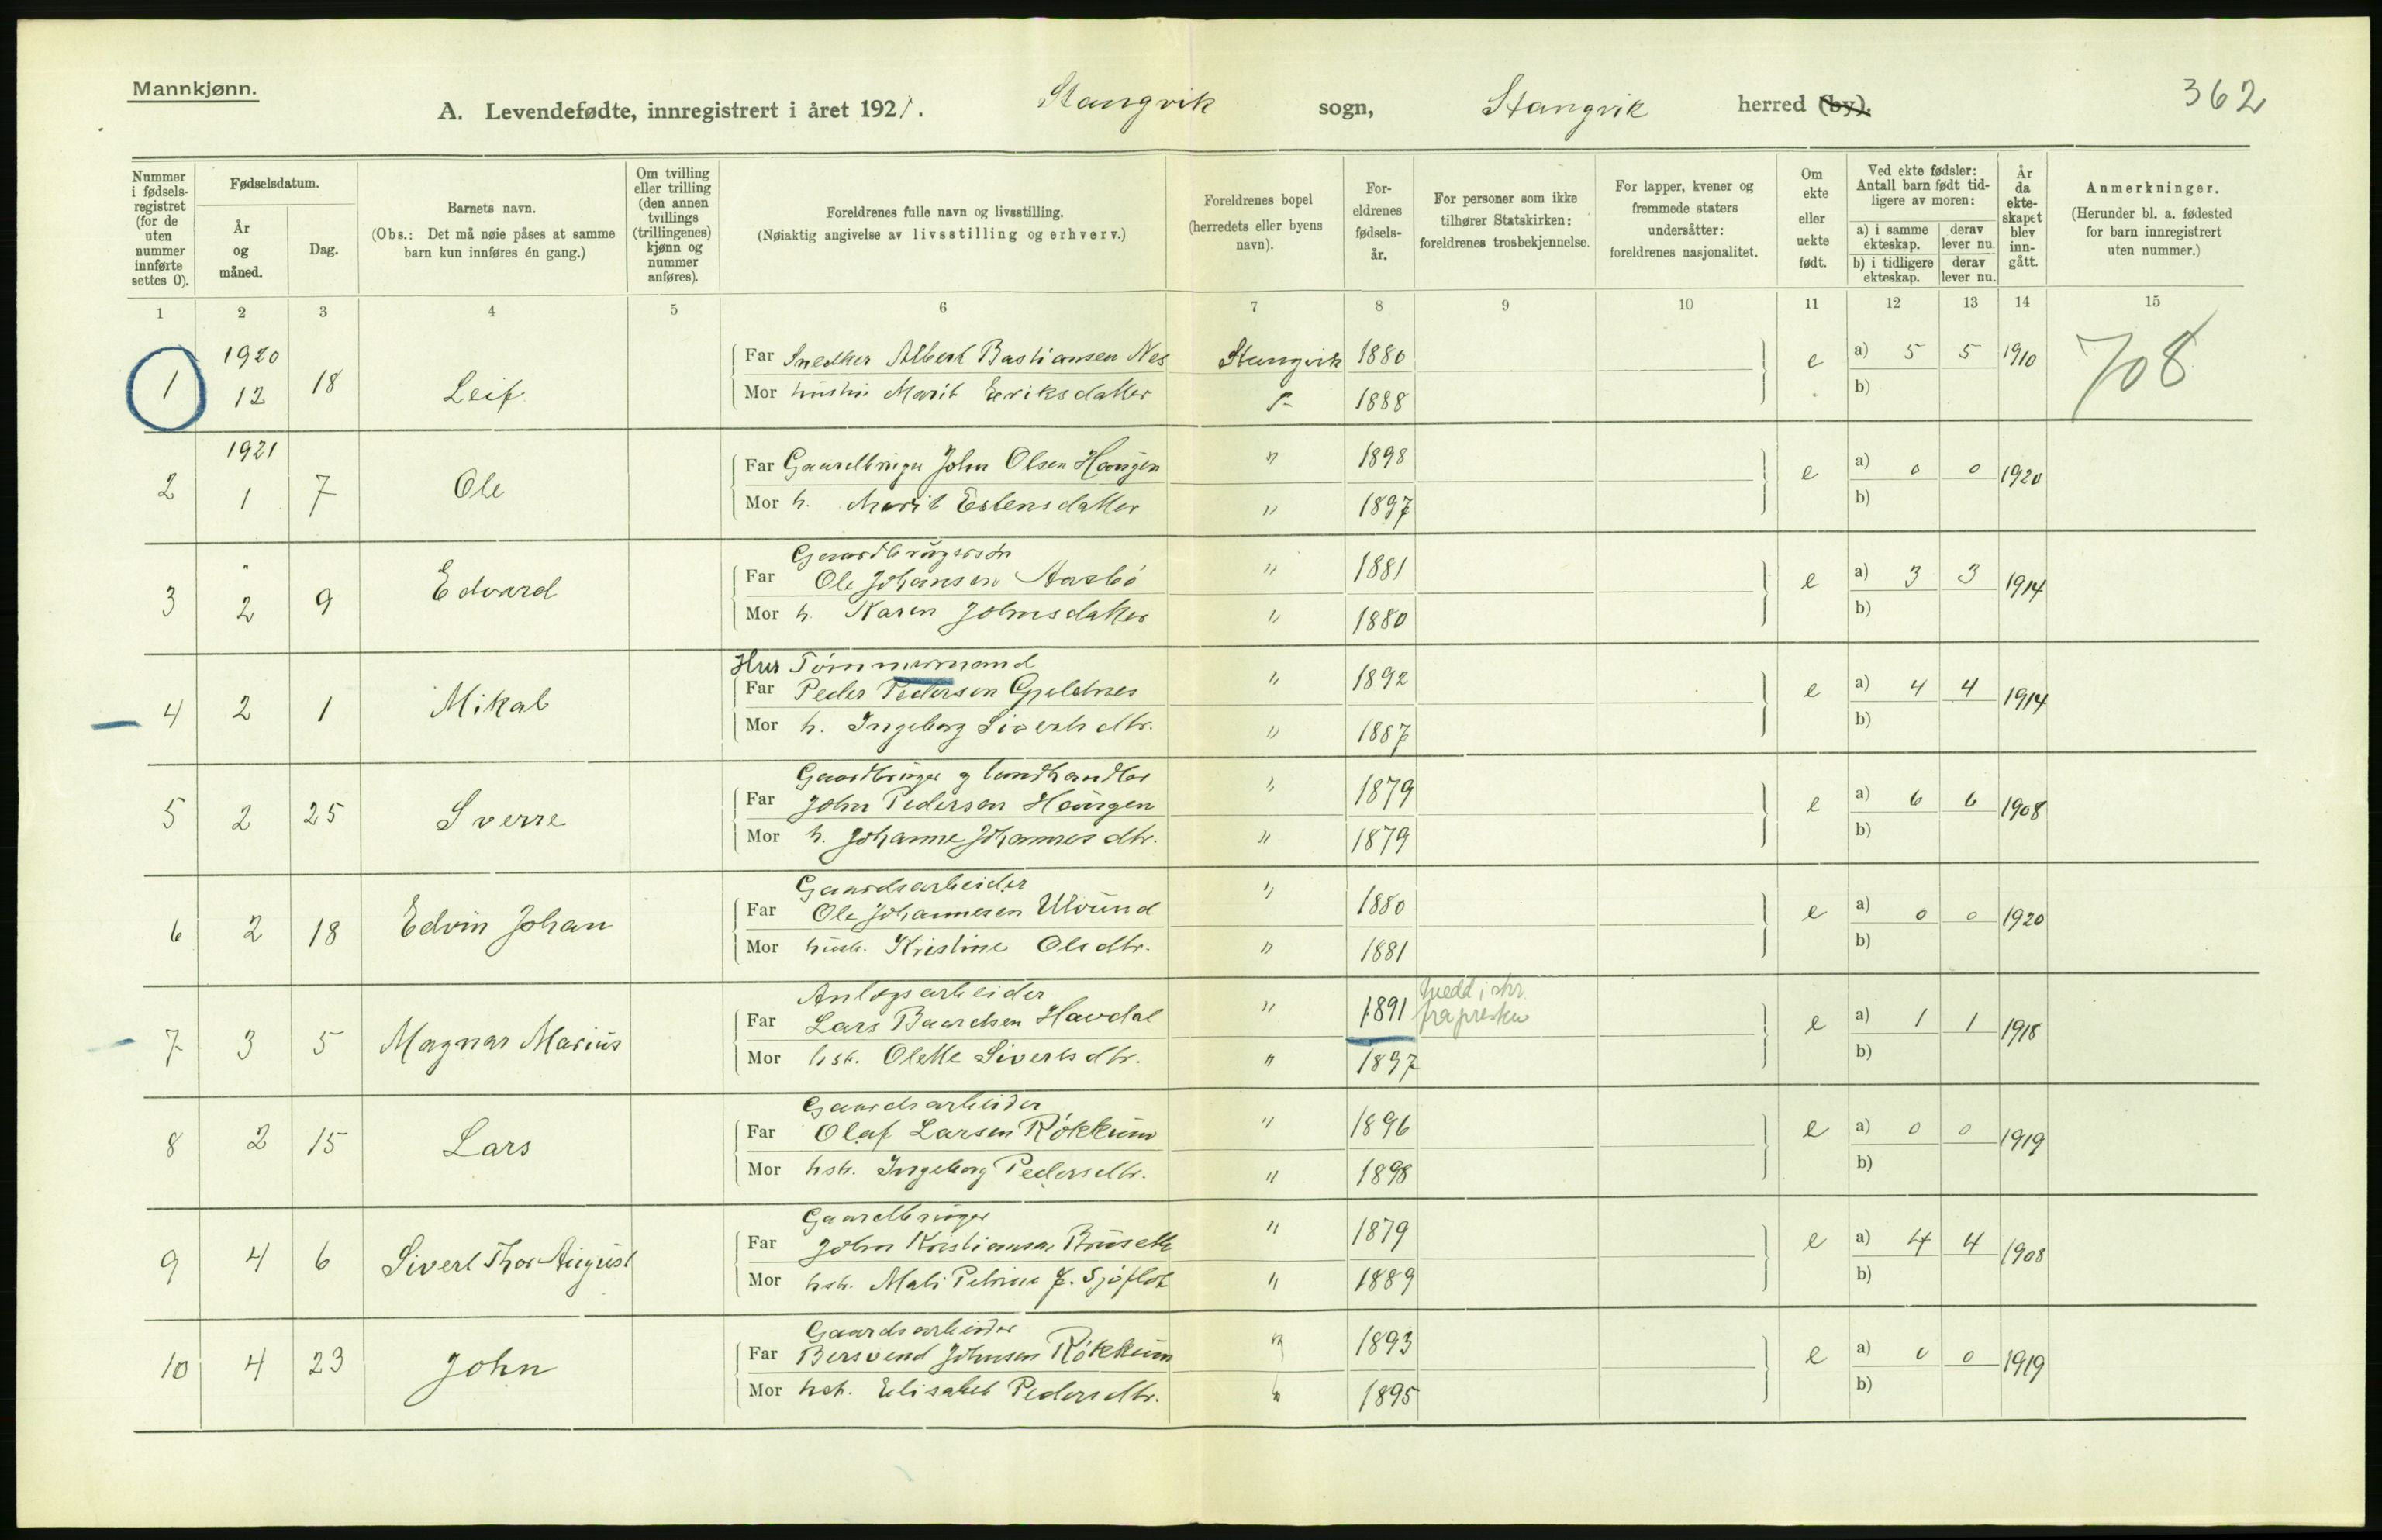 Mannkjønn.
362
A. Levendefødte, innregistrert i året 1921. Stangvik sogn, Stangvik herred (by).
Nummer i fødselsregistret (for de uten nummer innførte settes 0).
Fødselsdatum.
År og måned.
Dag.
Barnets navn.
(Obs.: Det må nøie påses at samme barn kun innføres én gang.)
Om tvilling eller trilling (den annen tvillings (trillingenes) kjønn og nummer anføres).
Foreldrenes fulle navn og livsstilling.
(Nøiaktig angivelse av livsstilling og erhverv.)
Foreldrenes bopel (herredets eller byens navn).
Foreldrenes fødselsår.
For personer som ikke tilhører Statskirken: foreldrenes trosbekjennelse.
For lapper, kvener og fremmede staters undersåtter: foreldrenes nasjonalitet.
Om ekte eller uekte født.
Ved ekte fødsler: Antall barn født tidligere av moren:
a) i samme ekteskap. derav lever nu.
b) i tidligere ekteskap. derav lever nu.
År da ekteskapet blev inngått.
Anmerkninger.
(Herunder bl. a. fødested for barn innregistrert uten nummer.)
1 2 3 4 5 6 7 8 9 10 11 12 13 14 15
1 1920 12 18 Leif
Far Snedker Albert Bastiansen Nes Stangvik 1880 e a) 5 5 1910 708
Mor hustru Marit Eeriksdatter 1888 b)
2 1921 1 7 Ole
Far Gaardbruger John Olsen Haugen " 1898 e a) 0 0 1920
Mor h. Marit Estensdatter " 1897 b)
3 " 2 9 Edvard
Gaardbrugersøn
Far Ole Johansen Aasbø " 1881 e a) 3 3 1914
Mor h. Karen Johnsdatter " 1880 b)
4 2 1 Mikal
Hus Tømmermand
Far Peder Pedersen Gjeldnes " 1892 e a) 4 4 1914
Mor h. Ingeborg Sivertsdtr. " 1887 b)
5 2 25 Sverre
Gaardbruger og landhandler
Far John Pedersen Haugen " 1879 e a) 6 6 1908
Mor h. Johanne Johannesdtr. " 1879 b)
6 2 18 Edvin Johan
Gaardsarbeider
Far Ole Johannesen Ulvund " 1880 e a) 0 0 1920
Mor hust. Kristine Olsdtr. " 1881 b)
7 3 5 Magnar Marius
Anlægsarbeider
Far Lars Baardsen Havdal " 1891 e a) 1 1 1918
fra presten
Mor hst. Olette Sivertsdtr. " 1897 b)
8 2 15 Lars
Gaardsarbeider
Far Olaf Larsen Røkkum " 1896 e a) 0 0 1919
Mor hst. Ingeborg Pedersdtr. " 1898 b)
9 4 6 Sivert Thor August
Gaardbruger
Far John Kristiansen Bruseth " 1879 e a) 4 4 1908
Mor hst. Mali Petrine J. Sjøflot " 1889 b)
10 4 23 John
Gaardsarbeider
Far Bersvend Johnsen Røkkum " 1893 e a) 0 0 1919
Mor hst. Elisabet Pedersdtr. " 1895 b)